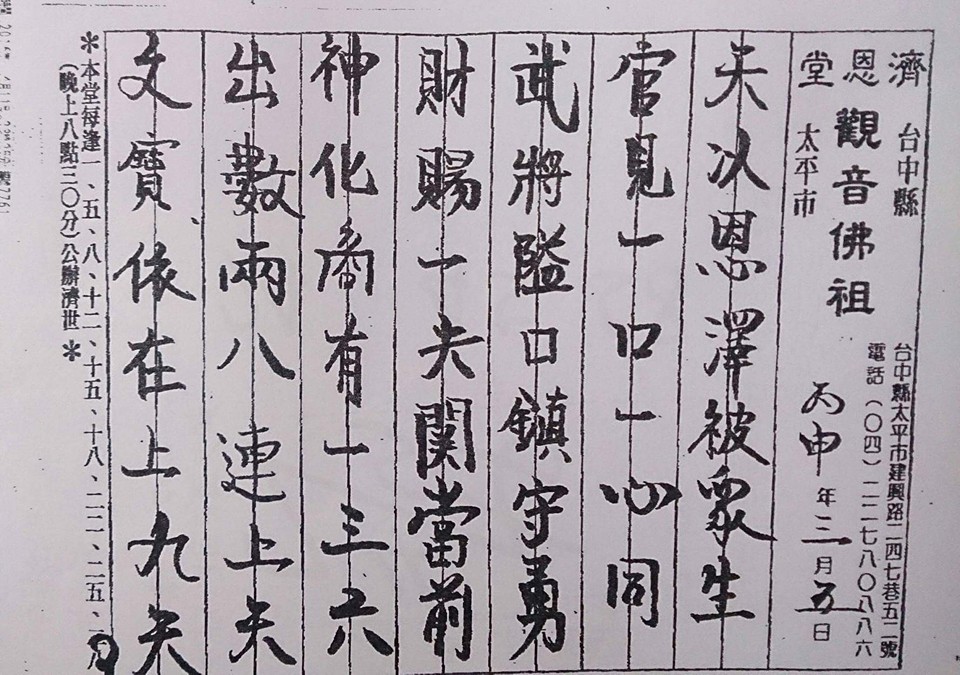 濟恩堂
台中縣太平市
觀音佛祖
台中縣太平市建興路二四七巷五二號
電話（〇四）二二七八〇八八六
丙申年二月五日
天以恩澤被眾生
官見一口一心同
武將隘口鎮守勇
財賜一夫關當前
神化裔有一三六
出數兩八連上天
文寶依在上九天
＊本堂每逢一、五、八、十二、十五、十八、二二、二五、二八
（晚上八點三〇分）公辦濟世＊